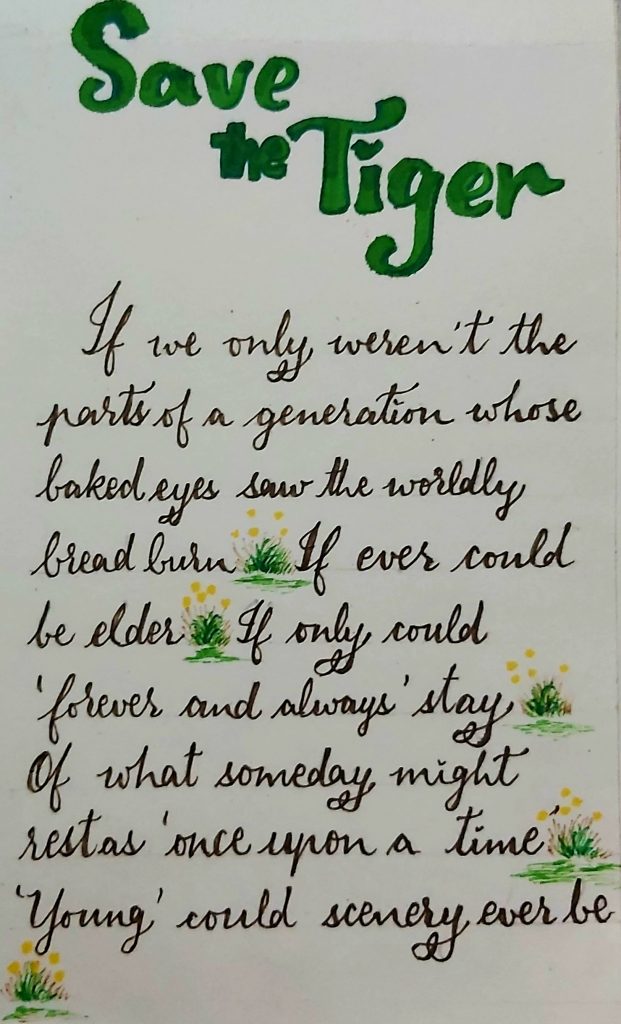 Save
the Tiger
If we only weren't the
parts of a generation whose
baked eyes saw the worldly
bread burn If ever could
be elder If only could
'forever and always' stay
Of what someday might
rest as 'once upon a time'
'Young' could scenery ever be